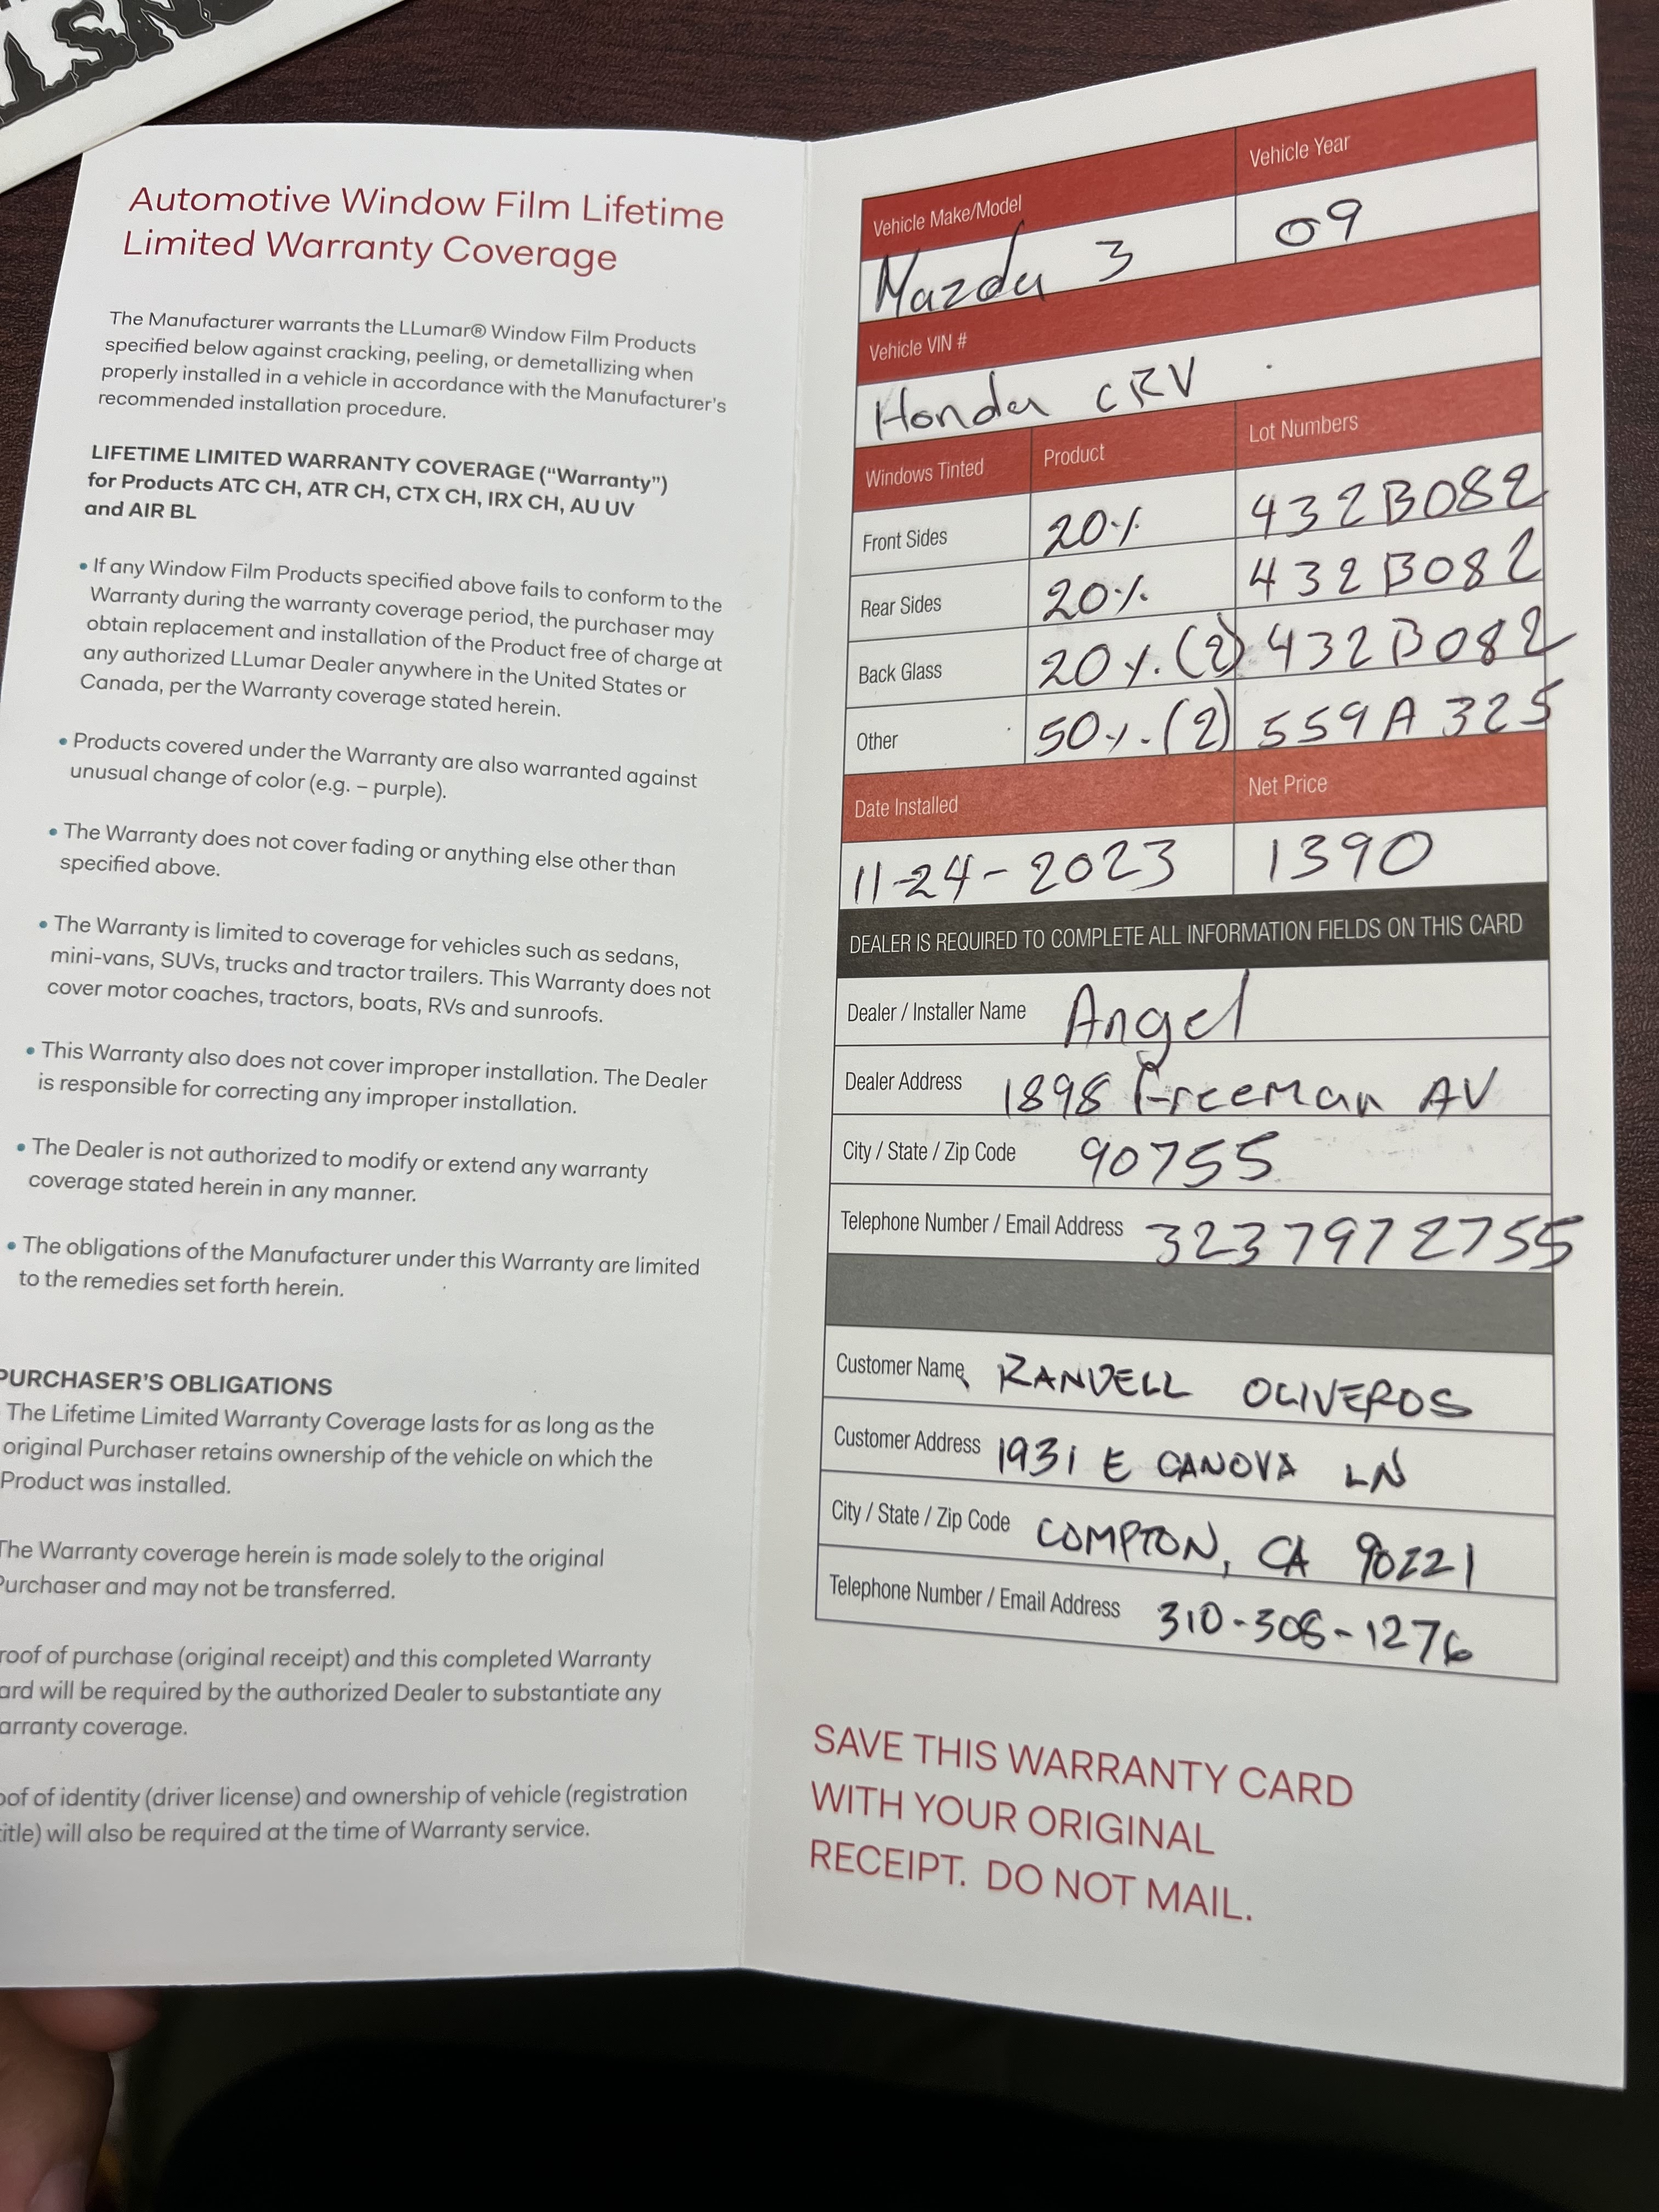 Automotive Window Film Lifetime
Limited Warranty Coverage
The Manufacturer warrants the LLumar® Window Film Products
specified below against cracking, peeling, or demetallizing when
properly installed in a vehicle in accordance with the Manufacturer's
recommended installation procedure.
LIFETIME LIMITED WARRANTY COVERAGE ("Warranty")
for Products ATC CH, ATR CH, CTX CH, IRX CH, AU UV
and AIR BL
• If any Window Film Products specified above fails to conform to the
Warranty during the warranty coverage period, the purchaser may
obtain replacement and installation of the Product free of charge at
any authorized LLumar Dealer anywhere in the United States or
Canada, per the Warranty coverage stated herein.
• Products covered under the Warranty are also warranted against
unusual change of color (e.g. – purple).
• The Warranty does not cover fading or anything else other than
specified above.
• The Warranty is limited to coverage for vehicles such as sedans,
mini-vans, SUVs, trucks and tractor trailers. This Warranty does not
cover motor coaches, tractors, boats, RVs and sunroofs.
• This Warranty also does not cover improper installation. The Dealer
is responsible for correcting any improper installation.
• The Dealer is not authorized to modify or extend any warranty
coverage stated herein in any manner.
• The obligations of the Manufacturer under this Warranty are limited
to the remedies set forth herein.
PURCHASER'S OBLIGATIONS
The Lifetime Limited Warranty Coverage lasts for as long as the
original Purchaser retains ownership of the vehicle on which the
Product was installed.
The Warranty coverage herein is made solely to the original
Purchaser and may not be transferred.
roof of purchase (original receipt) and this completed Warranty
ard will be required by the authorized Dealer to substantiate any
arranty coverage.
oof of identity (driver license) and ownership of vehicle (registration
title) will also be required at the time of Warranty service.
Vehicle Make/Model Vehicle Year
Mazda 3 09
Vehicle VIN #
Honda CRV
Windows Tinted Product Lot Numbers
Front Sides 20% 432B082
Rear Sides 20% 432B082
Back Glass 20%.(2) 432B082
Other 50%.(2) 559A325
Date Installed Net Price
11-24-2023 1390
DEALER IS REQUIRED TO COMPLETE ALL INFORMATION FIELDS ON THIS CARD
Dealer / Installer Name Angel
Dealer Address 1898 Freeman AV
City / State / Zip Code 90755
Telephone Number / Email Address 3237972755
Customer Name RANDELL OLIVEROS
Customer Address 1931 E CANOVA LN
City / State / Zip Code COMPTON, CA 90221
Telephone Number / Email Address 310-308-1276
SAVE THIS WARRANTY CARD
WITH YOUR ORIGINAL
RECEIPT. DO NOT MAIL.